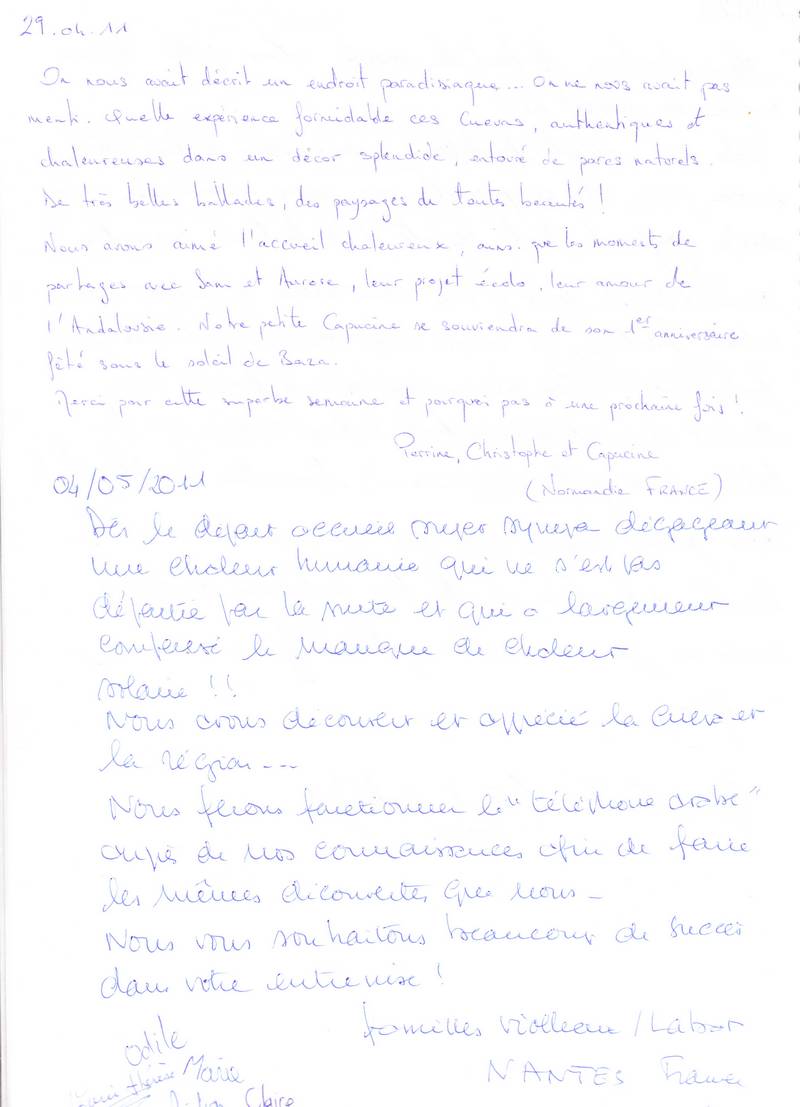 29.04.11
On nous avait décrit un endroit paradisiaque... On ne nous avait pas
menti. Quelle expérience formidable ces Cuevas, authentiques et
chaleureuses dans un décor splendide, entouré de parcs naturels.
De très belles ballades, des paysages de toutes beautés !
Nous avons aimé l'accueil chaleureux, ainsi que les moments de
partages avec Sam et Aurore, leur projet écolo, leur amour de
l'Andalousie. Notre petite Capucine se souviendra de son 1er anniversaire
fêté sous le soleil de Baza.
Merci pour cette superbe semaine et pourquoi pas à une prochaine fois !
Perrine, Christophe et Capucine
(Normandie FRANCE)
04/05/2011
Dès le départ accueil super sympa dégageant
une chaleur humaine qui ne s'est pas
départie par la suite et qui a largement
compensé le manque de chaleur
solaire !!
Nous avons découvert et apprécié la Cueva et
la région ---
Nous ferons fonctionner le "téléphone arabe"
auprès de nos connaissances afin de faire
les mêmes découvertes que nous -
Nous vous souhaitons beaucoup de succès
dans votre entreprise !
familles Violleau / Labat
NANTES France
Odile
Thérèse Marie
Claire